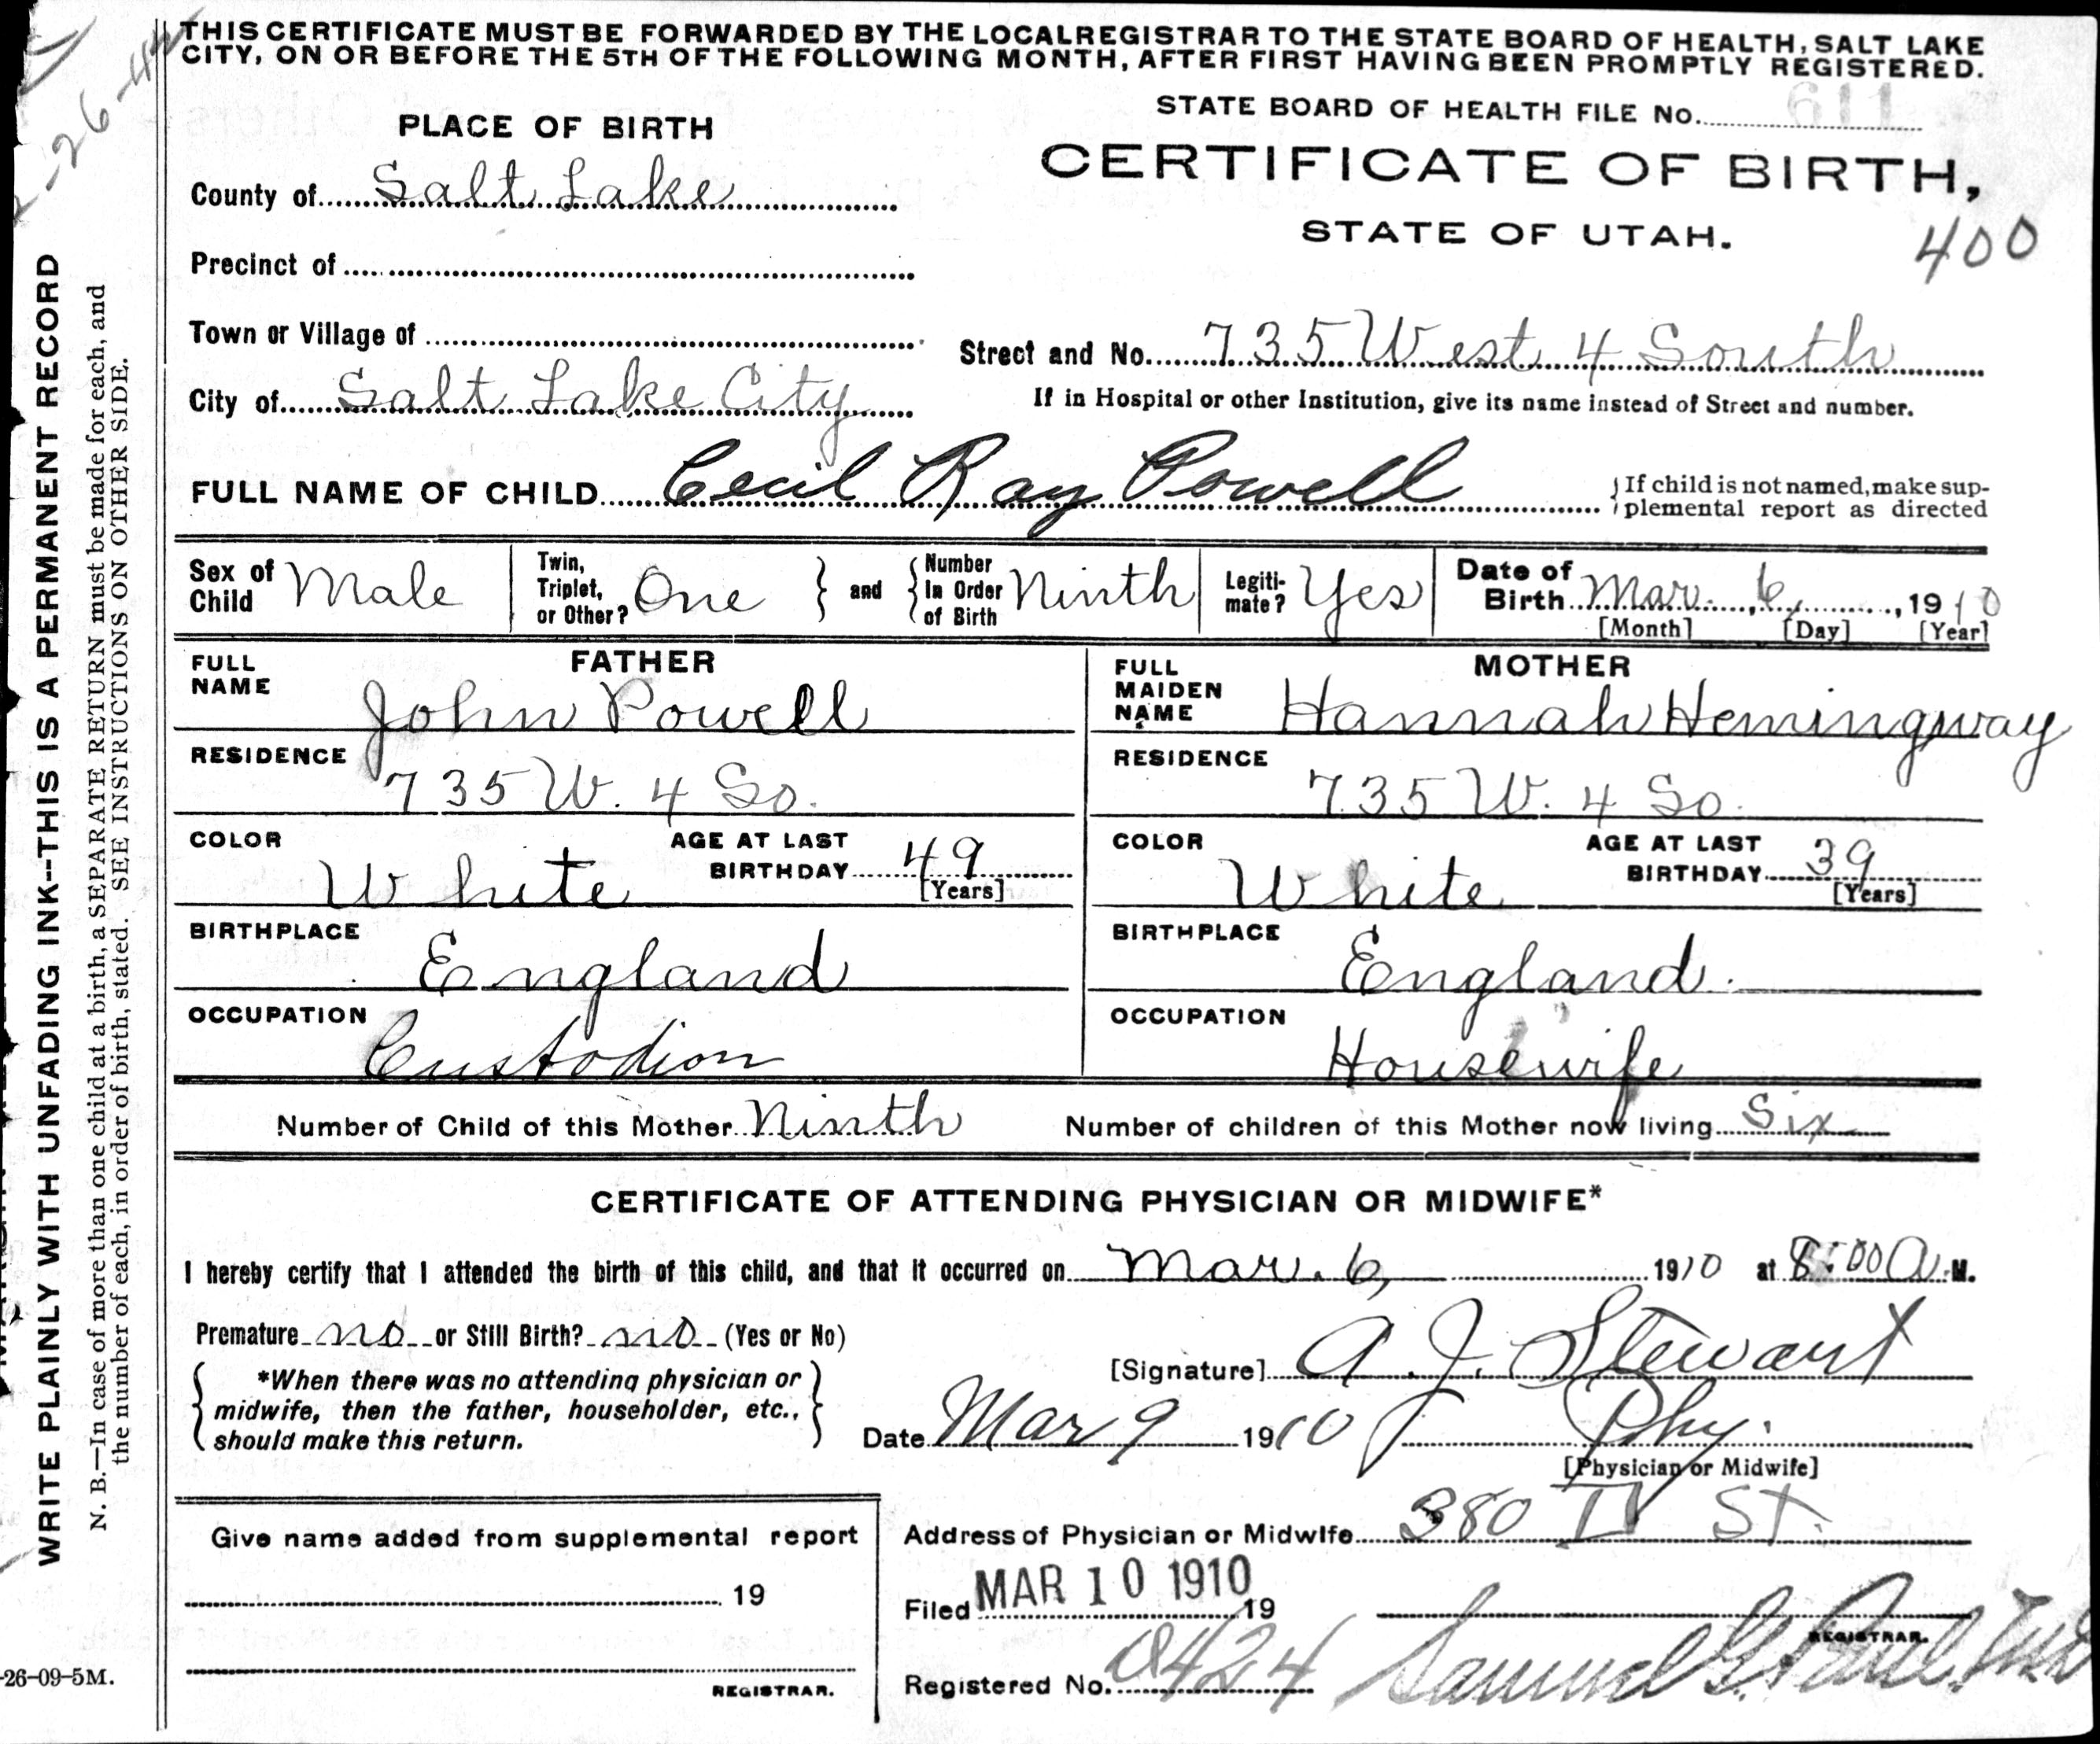 THIS CERTIFICATE MUST BE FORWARDED BY THE LOCAL REGISTRAR TO THE STATE BOARD OF HEALTH, SALT LAKE
CITY, ON OR BEFORE THE 5TH OF THE FOLLOWING MONTH, AFTER FIRST HAVING BEEN PROMPTLY REGISTERED.
STATE BOARD OF HEALTH FILE No. 611
PLACE OF BIRTH
CERTIFICATE OF BIRTH,
County of Salt Lake
STATE OF UTAH.
400
Precinct of
Town or Village of
Street and No. 735 West 4 South
City of Salt Lake City
If in Hospital or other Institution, give its name instead of Street and number.
FULL NAME OF CHILD Cecil Ray Powell
{If child is not named, make sup-
plemental report as directed
Sex of Child Male Twin, Triplet, or Other? One } and { Number In Order of Birth Ninth Legiti-mate? Yes Date of Birth Mar. 6, 1910
[Month] [Day] [Year]
FATHER
FULL NAME John Powell
RESIDENCE 735 W. 4 So.
COLOR White AGE AT LAST BIRTHDAY 49 [Years]
BIRTHPLACE England
OCCUPATION Custodion
MOTHER
FULL MAIDEN NAME Hannah Hemingway
RESIDENCE 735 W. 4 So.
COLOR White AGE AT LAST BIRTHDAY 39 [Years]
BIRTHPLACE England.
OCCUPATION Housewife
Number of Child of this Mother Ninth Number of children of this Mother now living Six
CERTIFICATE OF ATTENDING PHYSICIAN OR MIDWIFE*
I hereby certify that I attended the birth of this child, and that it occurred on Mar. 6, 1910 at 8:00 A. M.
Premature no or Still Birth? no (Yes or No)
*When there was no attending physician or
midwife, then the father, householder, etc.,
should make this return.
[Signature] A. J. Stewart
Date Mar 9 1910 Phy.
[Physician or Midwife]
Address of Physician or Midwife 380 St.
Give name added from supplemental report
19
REGISTRAR.
Filed MAR 10 1910 19
REGISTRAR.
Registered No. 424 Samuel G. Paul.
WRITE PLAINLY WITH UNFADING INK--THIS IS A PERMANENT RECORD
N. B.—In case of more than one child at a birth, a SEPARATE RETURN must be made for each, and
the number of each, in order of birth, stated. SEE INSTRUCTIONS ON OTHER SIDE.
-26-09-5M.